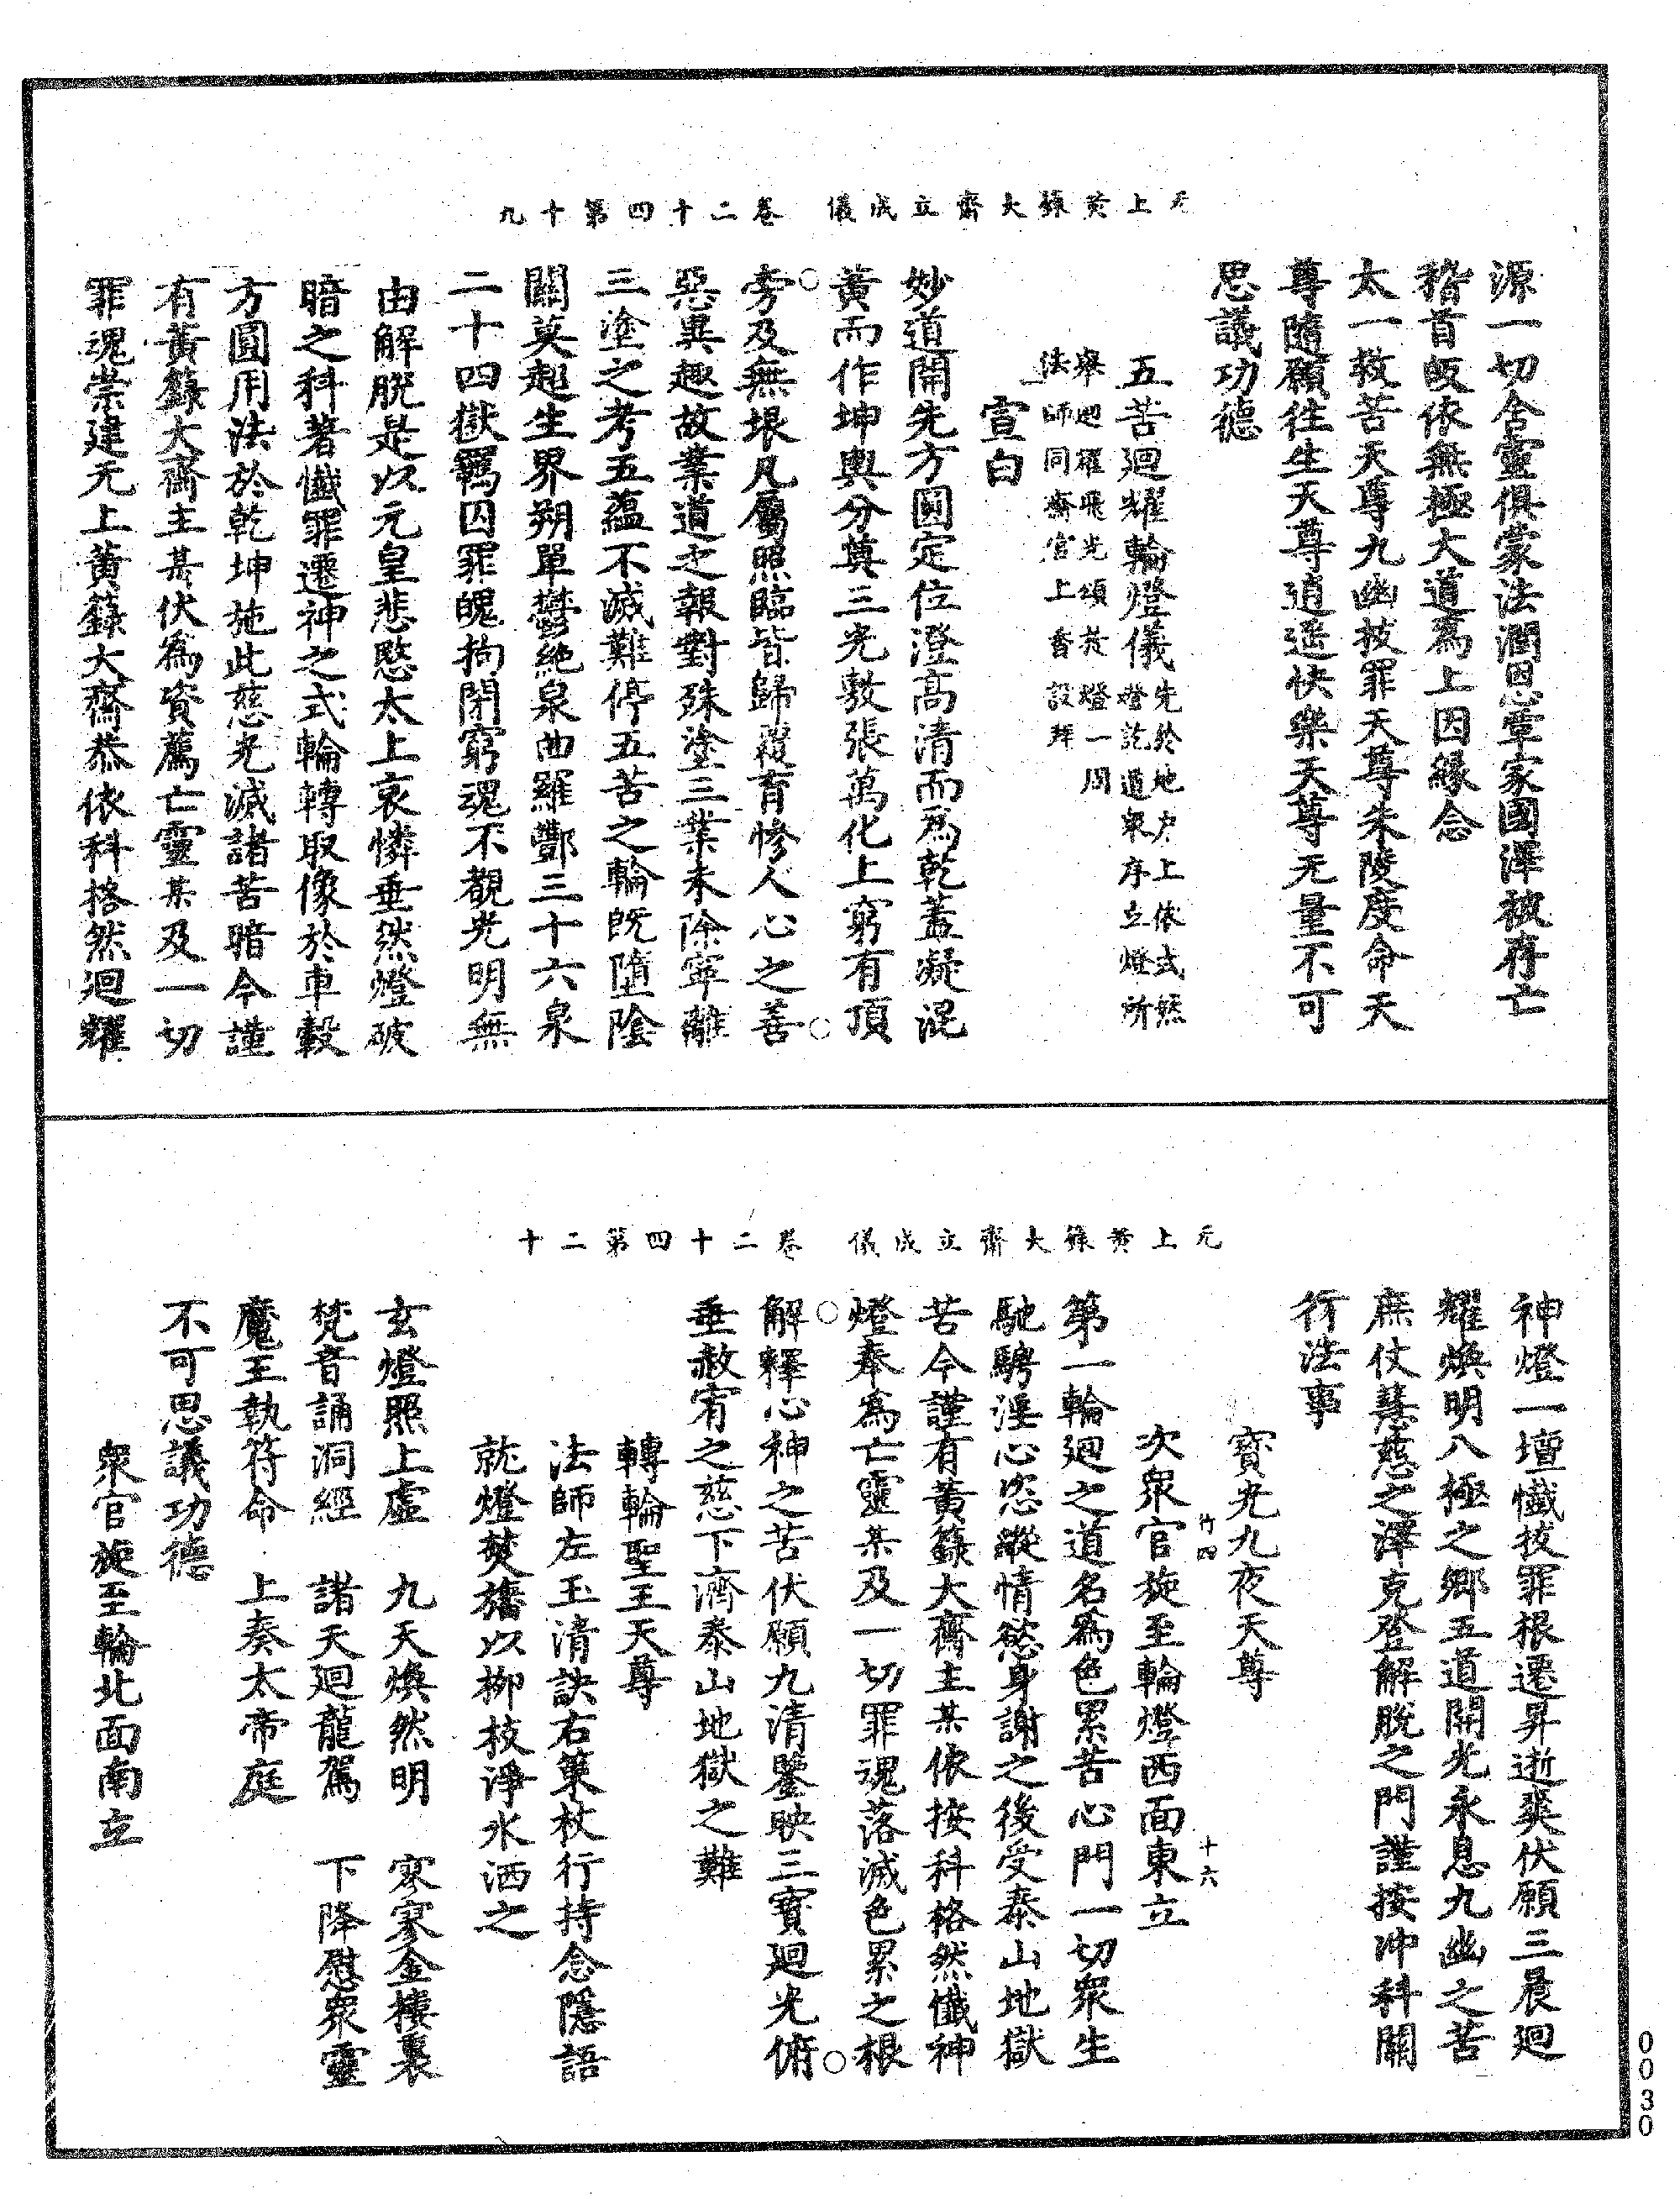 无上黃籙大齋立成儀 卷二十四第十九
源一切含靈俱蒙法潤恩覃家國澤被存亡
稽首皈依無極大道爲上因緣念
太一救苦天尊九幽拔罪天尊朱陵度命天
尊隨願往生天尊逍遥快樂天尊无量不可
思議功德
五苦迴耀輪燈儀先於地户上依式然
燈訖道衆序立燈所
舉迴耀飛光頌於燈一周
法師同齋官上香設拜
宣白
妙道開先方圓定位澄高清而爲乾蓋凝混
黃而作坤輿分奠三光敷張萬化上窮有頂
旁及無垠凡屬照臨皆歸覆育慘人心之善
惡異趣故業道之報對殊塗三業未除寧離
三塗之考五蘊不滅難停五苦之輪既墮陰
關莫起生界朔單鬱絶泉曲羅酆三十六泉
二十四獄羈囚罪魄拘閉窮魂不觀光明無
由解脫是以元皇悲愍太上哀憐垂然燈破
暗之科著懺罪遷神之式輪轉取像於車轂
方圓用法於乾坤施此慈光滅諸苦暗今謹
有黃籙大齋主某伏爲資薦亡靈某及一切
罪魂崇建无上黃籙大齋恭依科格然迴耀
无上黃籙大齋立成儀 卷二十四第二十
神燈一壇懺拔罪根遷昇逝爽伏願三晨迴
耀煥明八極之鄉五道開光永息九幽之苦
庶仗慧慈之澤克登解脫之門謹按冲科關
行法事
寳光九夜天尊
竹四 十六
次衆官旋至輪燈西面東立
第一輪迴之道名爲色累苦心門一切衆生
馳騁淫心恣縱情慾身謝之後受泰山地獄
苦今謹有黃籙大齋主某依按科格然懺神
燈奉爲亡靈某及一切罪魂落滅色累之根
解釋心神之苦伏願九清鑒映三寳迴光俯
垂赦宥之慈下濟泰山地獄之難
轉輪聖王天尊
法師左玉清訣右策杖行持念隱語
就燈焚旛以柳枝淨水洒之
玄燈照上虛 九天煥然明 寥寥金樓裏
梵音誦洞經 諸天迴龍駕 下降慰衆靈
魔王執符命 上奏太帝庭
不可思議功德
衆官旋至輪北面南立
0030